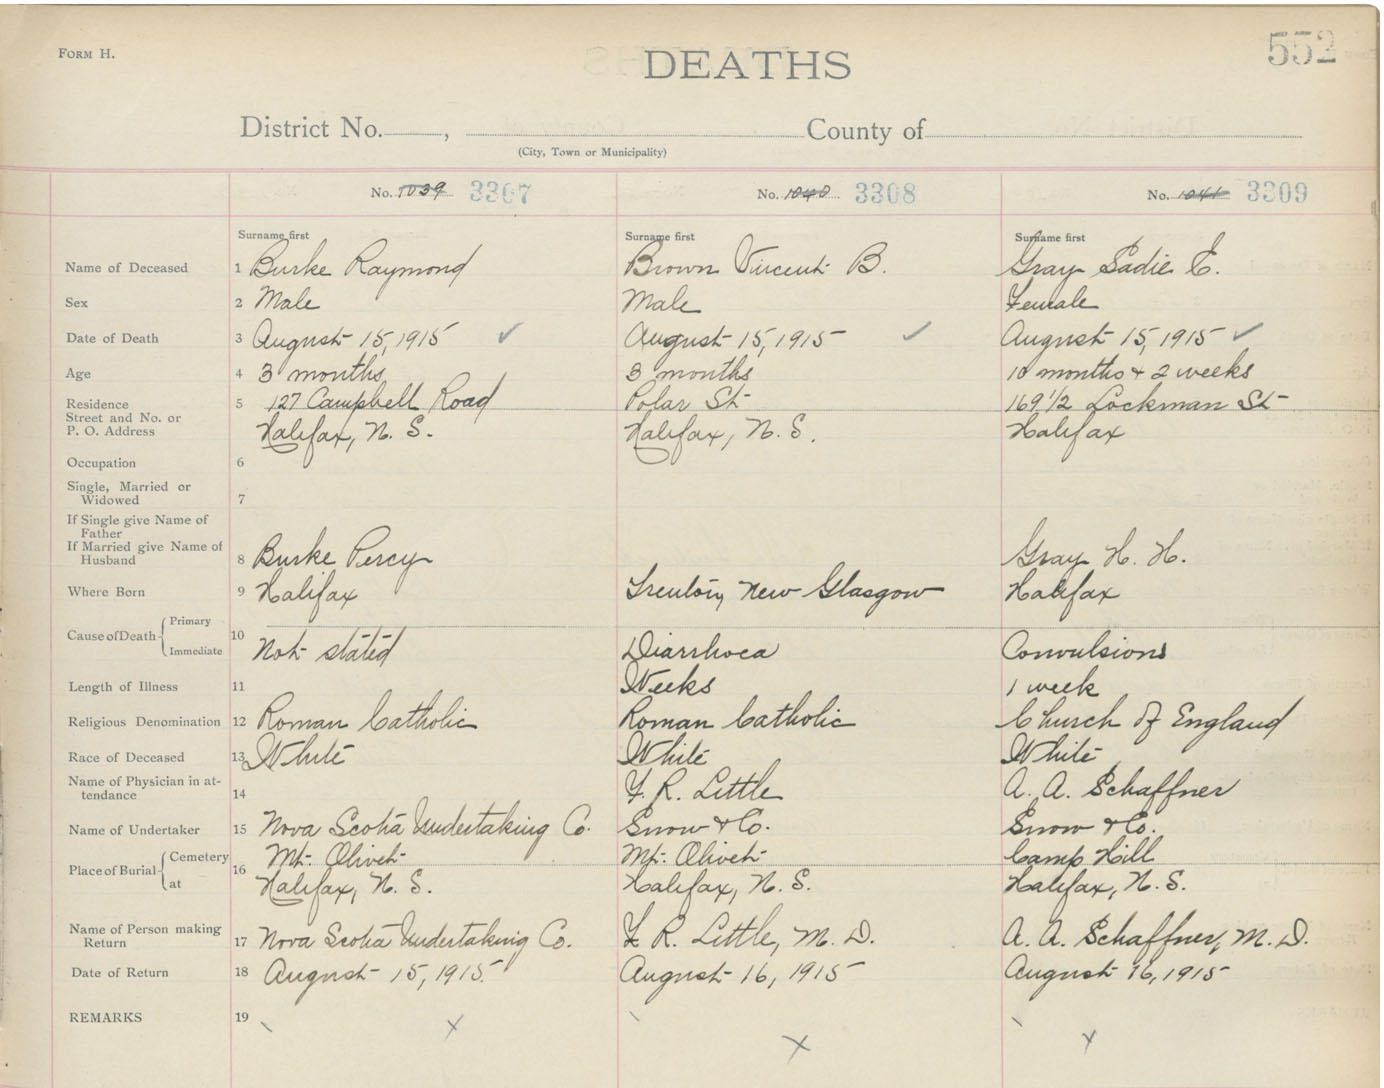 FORM H.
DEATHS
552
District No. , County of
(City, Town or Municipality)
No. 1039 3307
No. 1040 3308
No. 1041 3309
Surname first
Surname first
Surname first
Name of Deceased 1 Burke Raymond
Brown Vincent B.
Gray Sadie E.
Sex 2 Male
Male
Female
Date of Death 3 August 15, 1915 ✓
August 15, 1915 ✓
August 15, 1915 ✓
Age 4 3 months
3 months
10 months + 2 weeks
Residence 5 127 Campbell Road
Polar St
169 1/2 Lockman St
Street and No. or
P. O. Address
Halifax, N. S.
Halifax, N. S.
Halifax
Occupation 6
Single, Married or
Widowed 7
If Single give Name of
Father
If Married give Name of
Husband 8 Burke Percy
Gray H. H.
Where Born 9 Halifax
Trenton, New Glasgow
Halifax
Cause of Death { Primary
Immediate 10 Not stated
Diarrhoea
Convulsions
Length of Illness 11
Weeks
1 week
Religious Denomination 12 Roman Catholic
Roman Catholic
Church of England
Race of Deceased 13 White
White
White
Name of Physician in at-
tendance 14
F. R. Little
A. A. Schaffner
Name of Undertaker 15 Nova Scotia Undertaking Co.
Snow & Co.
Snow & Co.
Place of Burial { Cemetery
at 16
Mt. Olivet
Halifax, N. S.
Mt. Olivet
Halifax, N. S.
Camp Hill
Halifax, N. S.
Name of Person making
Return 17 Nova Scotia Undertaking Co.
F. R. Little, M. D.
A. A. Schaffner, M. D.
Date of Return 18 August 15, 1915.
August 16, 1915
August 16, 1915
REMARKS 19
x
x
x